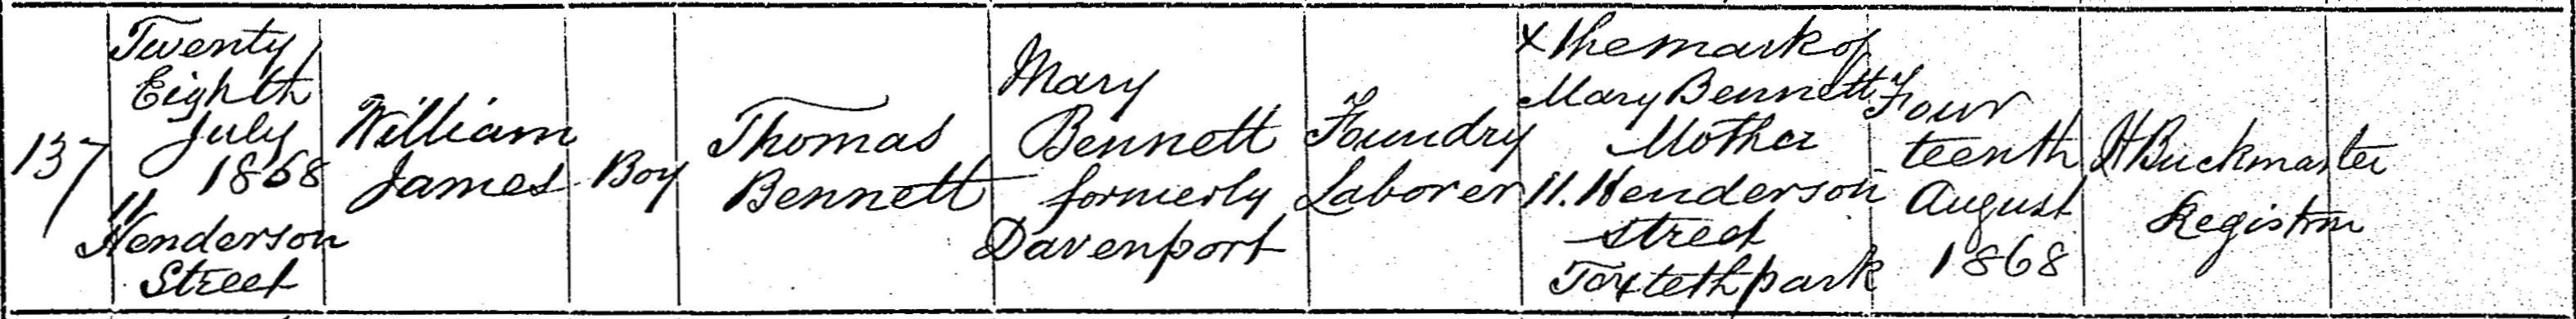 137
Twenty
Eighth
July
1868
11
Henderson
Street
William
James
Boy
Thomas
Bennett
Mary
Bennett
formerly
Davenport
Foundry
Laborer
X The mark of
Mary Bennett
Mother
11. Henderson
Street
Toxteth park
Four
teenth
August
1868
H Buckmaster
Registrar